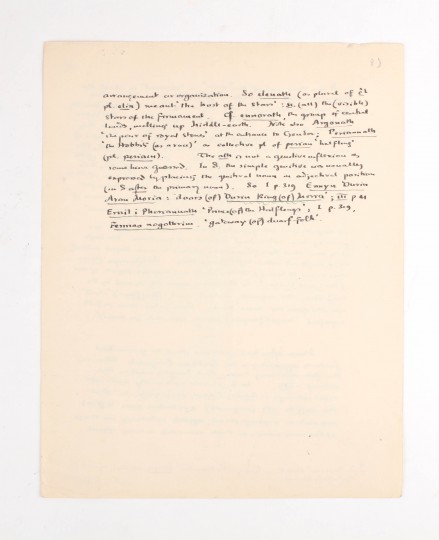 1)
arrangement or organization. So elenath (as plural of êl
pl. elin) meant "the host of the stars": sc. (all) the (visible)
stars of the firmament. Cf. ennorath the group of central
lands, making up Middle-earth. Note also Argonath
"the pair of royal stones" at the entrance to Gondor; Periannath
"the Hobbits (as a race)" as collective pl. of perian "halfling"
(pl. periain). The ath is not a genitive inflexion as
some have guessed. In S. the simple genitive was usually
expressed by placing the genitival noun in adjectival position
(in S after the primary noun). So I p 319 Ennyn Durin
Aran Moria: doors (of) Durin King (of) Moria; III p
Ernil i Pheriannath "Prince (of) the Halflings"; I p. 319,
Fennas nogothrim. "gateway (of) dwarf-folk".